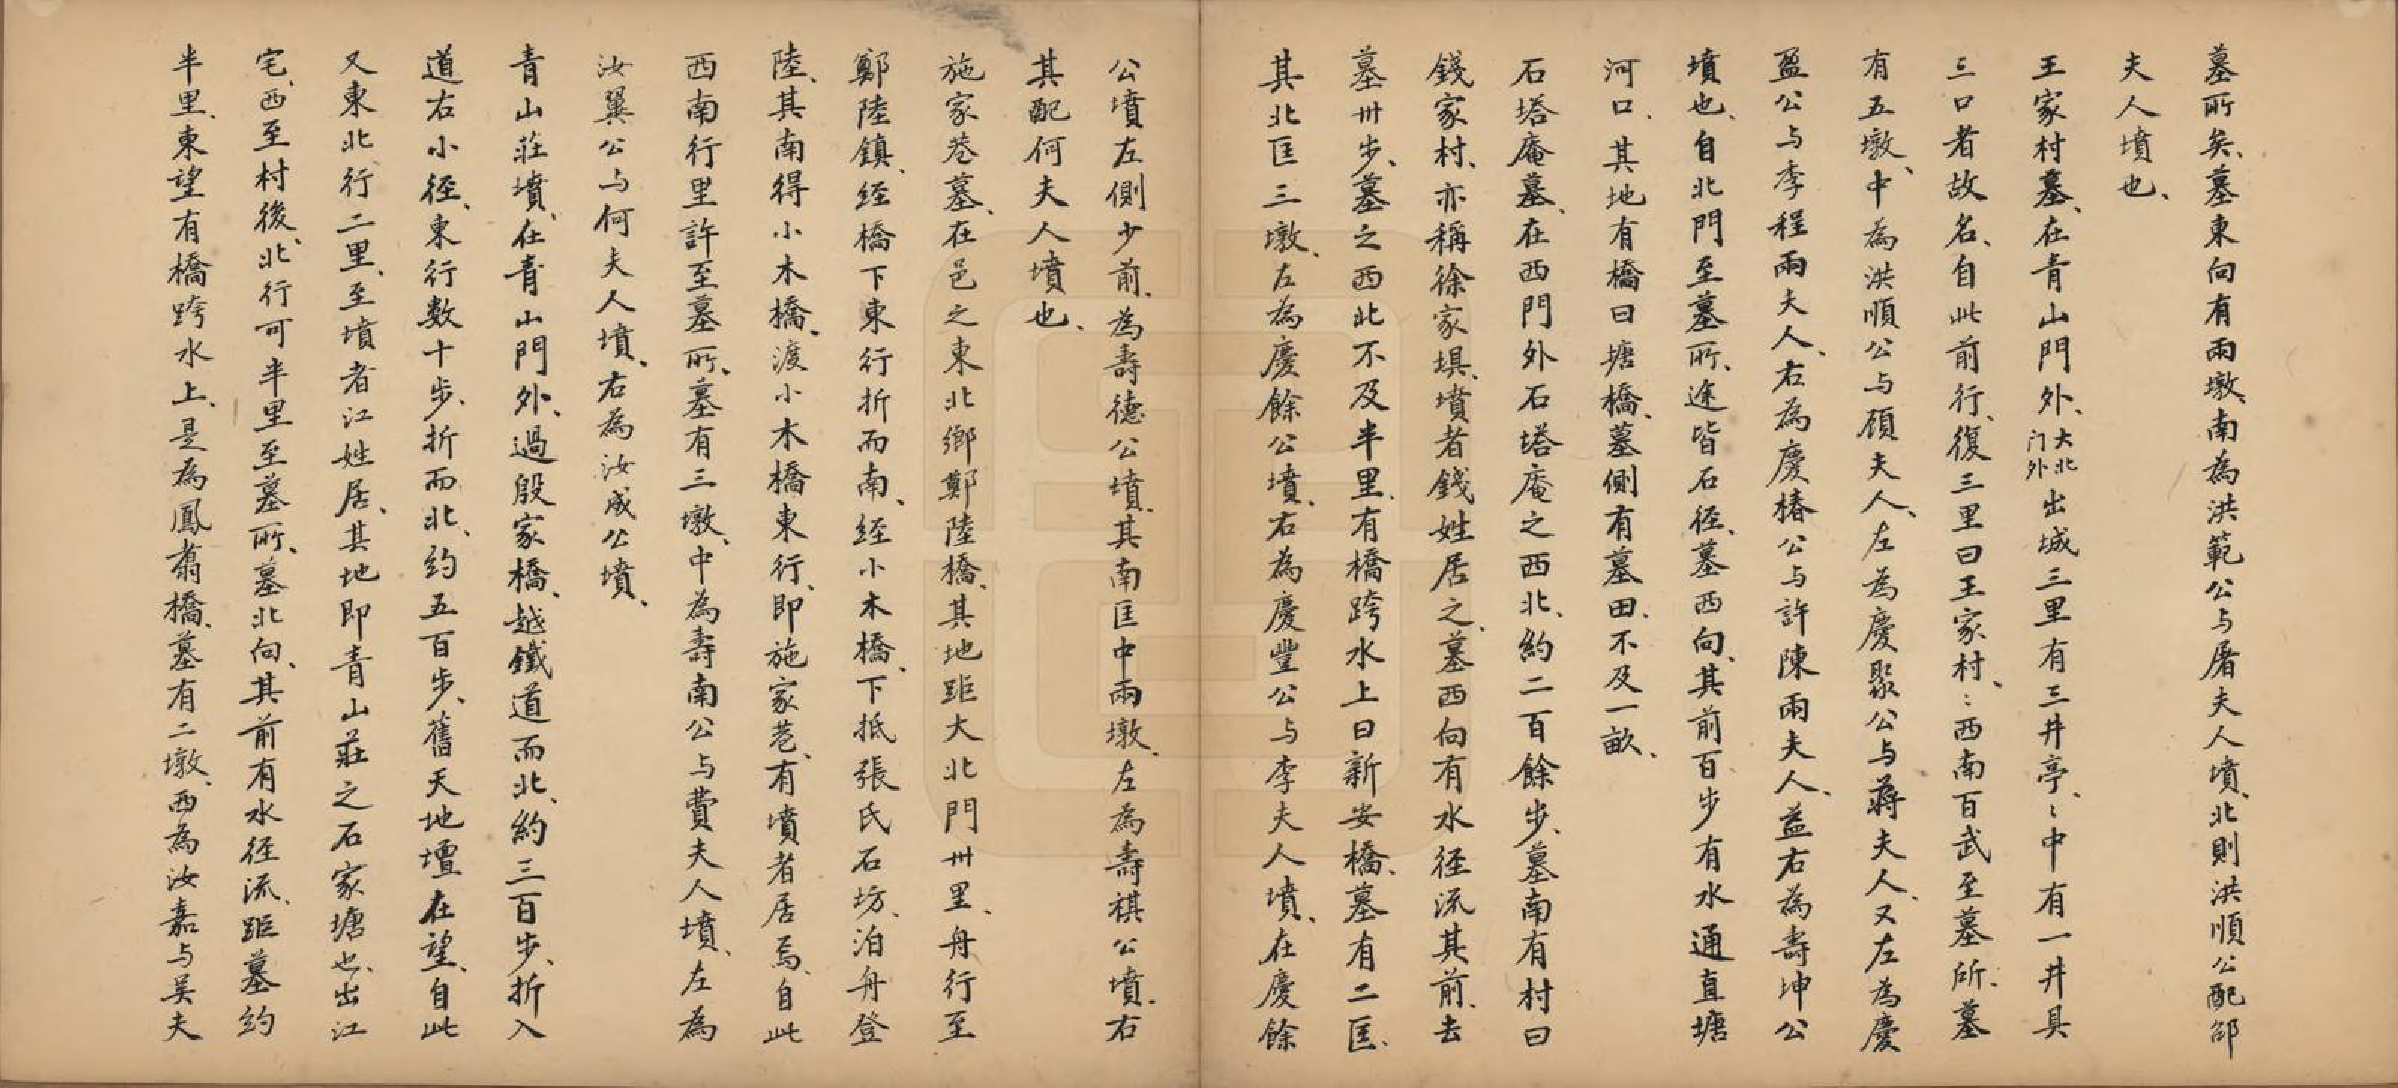 墓所矣、墓東向有兩墩、南為洪範公与屠夫人墳、北則洪順公配邵
夫人墳也、
王家村墓、在青山門外、大北门外出城三里有三井亭、〻中有一井具
三口者故名、自此前行、復三里曰王家村、〻西南百武至墓所、墓
有五墩、中為洪順公与顧夫人、左為慶聚公与蔣夫人、又左為慶
盈公与李程兩夫人、右為慶椿公与許陳兩夫人、益右為壽坤公
墳也、自北門至墓所、途皆石徑、墓西向、其前百步有水通直塘
河口、其地有橋曰塘橋、墓側有墓田、不及一畝、
石塔庵墓、在西門外石塔庵之西北、約二百餘步、墓南有村曰
錢家村、亦稱徐家垻、墳者錢姓居之、墓西向有水徑流其前、去
墓卅步、墓之西北不及半里、有橋跨水上曰新安橋、墓有二匡、
其北匡三墩、左為慶餘公墳、右為慶豐公与李夫人墳、在慶餘
公墳左側少前、為壽德公墳、其南匡中兩墩、左為壽祺公墳、右
其配何夫人墳也、
施家巷墓、在邑之東北鄉鄭陸橋、其地距大北門卅里、舟行至
鄭陸鎮、經橋下東行折而南、經小木橋、下抵張氏石坊、泊舟登
陸、其南得小木橋、渡小木橋東行、即施家巷、有墳者居焉、自此
西南行里許至墓所、墓有三墩、中為壽南公与費夫人墳、左為
汝翼公与何夫人墳、右為汝成公墳、
青山莊墳、在青山門外、過殷家橋、越鐵道而北、約三百步、折入
道右小徑、東行数十步、折而北、約五百步、舊天地壇在望、自此
又東北行二里、至墳者江姓居、其地即青山莊之石家塘也、出江
宅、西至村後、北行可半里至墓所、墓北向、其前有水徑流、距墓約
半里、東望有橋跨水上、是為鳳翥橋、墓有二墩、西為汝嘉与吴夫